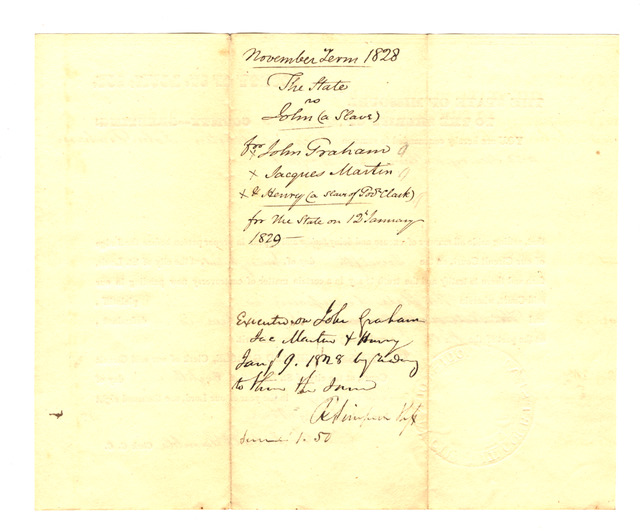 November Term 1828
The State
vs
John (a Slave)
for
x John Graham
x Jacques Martin
x & Henry (a Slave of Gov. Clark)
for the State on 12 January
1829 —
Executed on John Graham
Jac Martin & Henry
Jany 9. 1828 by reading
to them the Same
R Simpson Shff
1.50